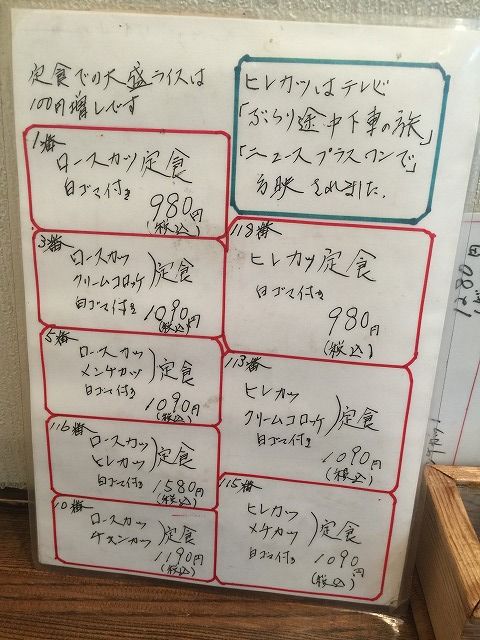 定食での大盛ライスは
100円増しです
ヒレカツはテレビ
「ぶらり途中下車の旅」
「ニュースプラスワンで」
放映されました.
1番
ロースカツ定食
白ゴマ付き
980円
(税込)
3番
ロースカツ
クリームコロッケ)定食
白ゴマ付き
1090円
(税込)
5番
ロースカツ
メンチカツ)定食
白ゴマ付き
1090円
(税込)
116番
ロースカツ
ヒレカツ)定食
白ゴマ付き
1580円
(税込)
10番
ロースカツ
チキンカツ)定食
1190円
(税込)
118番
ヒレカツ定食
白ゴマ付き
980円
(税込)
113番
ヒレカツ
クリームコロッケ)定食
白ゴマ付き
1090円
(税込)
115番
ヒレカツ
メチカツ)定食
白ゴマ付き
1090円
(税込)
1280円